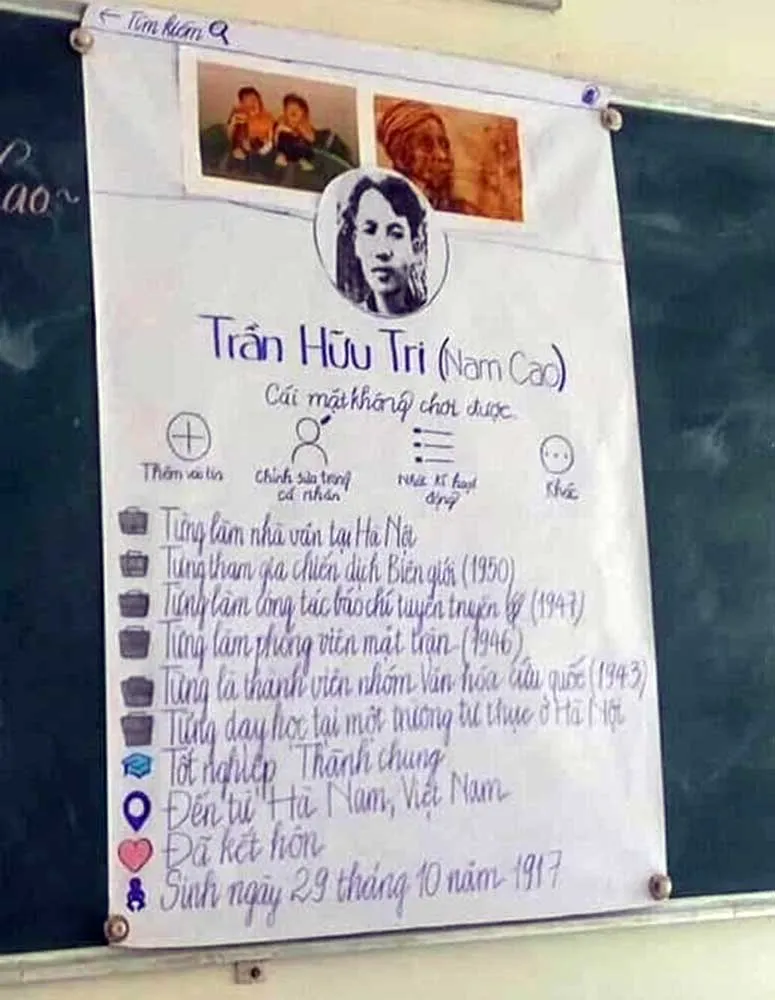 ← Tìm kiếm
ao~
Trần Hữu Tri (Nam Cao)
Cái mặt không chơi được.
Thêm vào tin
Chỉnh sửa trang cá nhân
Nhật kí hoạt động
Khác
Từng làm nhà văn tại Hà Nội
Từng tham gia chiến dịch Biên giới (1950)
Từng làm công tác báo chí tuyên truyền (1947)
Từng làm phóng viên mặt trận (1946)
Từng là thành viên nhóm Văn hóa cứu quốc (1943)
Từng dạy học tại một trường tư thục ở Hà Nội
Tốt nghiệp Thành chung
Đến từ Hà Nam, Việt Nam
Đã kết hôn
Sinh ngày 29 tháng 10 năm 1917